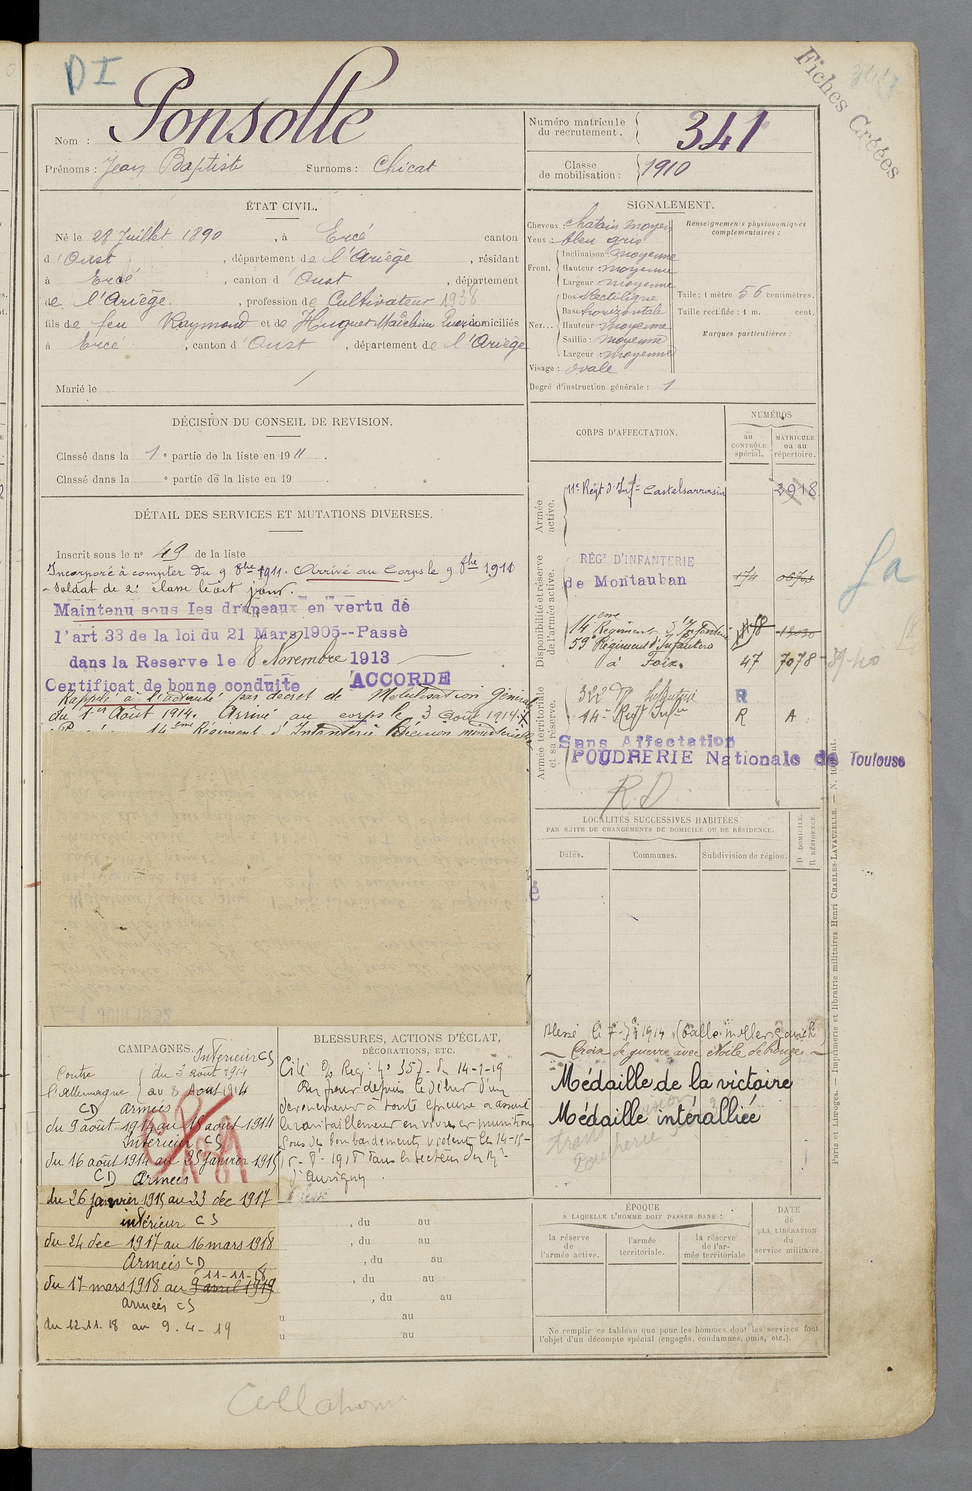 DI
Fiches Créées
Nom : Ponsolle
Prénoms : Jean Baptiste Surnoms : Chicat
Numéro matricule du recrutement. 341
Classe de mobilisation : 1910
ÉTAT CIVIL.
Né le 28 Juillet 1890, à Ercé canton
d'Oust, département de l'Ariège, résidant
à Ercé, canton d'Oust, département
de l'Ariège, profession de Cultivateur 1938
fils de feu Raymond et de Huguet domiciliés
à Ercé, canton d'Oust, département de l'Ariège
Marié le
SIGNALEMENT.
Cheveux : chatain moyen
Yeux : bleu gris
Front. Inclinaison : moyenne
Hauteur : moyenne
Largeur : moyenne
Nez... Dos : Rectiligne
Base : horizontale
Hauteur : moyenne
Saillie : moyenne
Largeur : moyenne
Visage : ovale
Degré d'instruction générale : 1
Renseignements physionomiques complémentaires :
Taille : 1 mètre 56 centimètres.
Taille rectifiée : 1 m. cent.
Marques particulières :
DÉCISION DU CONSEIL DE REVISION.
Classé dans la 1e partie de la liste en 1911.
Classé dans la e partie de la liste en 19 .
DÉTAIL DES SERVICES ET MUTATIONS DIVERSES.
Inscrit sous le n° 49 de la liste
Incorporé à compter du 9 8bre 1911. Arrivé au Corps le 9 8bre 1911
- Soldat de 2e classe le dit jour.
Maintenu sous les drapeaux en vertu de
l'art 33 de la loi du 21 Mars 1905--Passé
dans la Reserve le 8 Novembre 1913
Certificat de bonne conduite ACCORDÉ
Rappelé à l'activité par décret de Mobilisation Générale
du 1er Août 1914. Arrivé au corps le 3 août 1914
14ème Régiment d'Infanterie Décision ministérielle
CORPS D'AFFECTATION.
NUMÉROS
au CONTRÔLE spécial.
MATRICULE ou au répertoire.
Armée active.
11e Régt d'Inf. Castelsarrasin 2918
Disponibilité et réserve de l'armée active.
RÉGt D'INFANTERIE
de Montauban 174
14eme Régiment
59e Régiment d'Infanterie
à Foix. 47 7078
Armée territoriale et sa réserve.
322e R
14e Régt Infrie R A
Sans Affectation
POUDRERIE Nationale de Toulouse
R.D
LOCALITÉS SUCCESSIVES HABITÉES
PAR SUITE DE CHANGEMENTS DE DOMICILE OU DE RÉSIDENCE.
Dates. Communes. Subdivision de région.
D DOMICILE.
R RÉSIDENCE.
CAMPAGNES.
Intérieur CS
Contre l'Allemagne
du 3 août 1914
au 8 Août 1914
CD Armées
du 9 août 1914 au 15 août 1914
Intérieur CS
du 16 août 1914 au 25 janvier 1915
CD Armées
du 26 janvier 1915 au 23 déc 1917
intérieur CS
du 24 déc 1917 au 16 mars 1918
Armées CD
11-11-18
du 17 mars 1918 au 9 avril 1919
armées CS
du 12.11.18 au 9.4-19
BLESSURES, ACTIONS D'ÉCLAT,
DÉCORATIONS, ETC.
Cité Reg. n° 357 du 14-1-19
depuis le début d'un
dévouement à toute épreuve a assuré
le ravitaillement en vivres et munitions
sous des bombardements violents les 14-15-
dans le secteur du
d'Auvigny
, du au
, du au
, du au
, du au
, du au
au
au
Blessé le
Croix de guerre avec étoile de bronze
Médaille de la victoire
Médaille intéralliée
ÉPOQUE
A LAQUELLE L'HOMME DOIT PASSER DANS :
la réserve de l'armée active.
l'armée territoriale.
la réserve de l'armée territoriale
DATE de LA LIBÉRATION du service militaire.
Ne remplir ce tableau que pour les hommes dont les services font
l'objet d'un décompte spécial (engagés, condamnés, omis, etc.).
Paris et Limoges. — Imprimerie et librairie militaires Henri CHARLES-LAVAUZELLE.